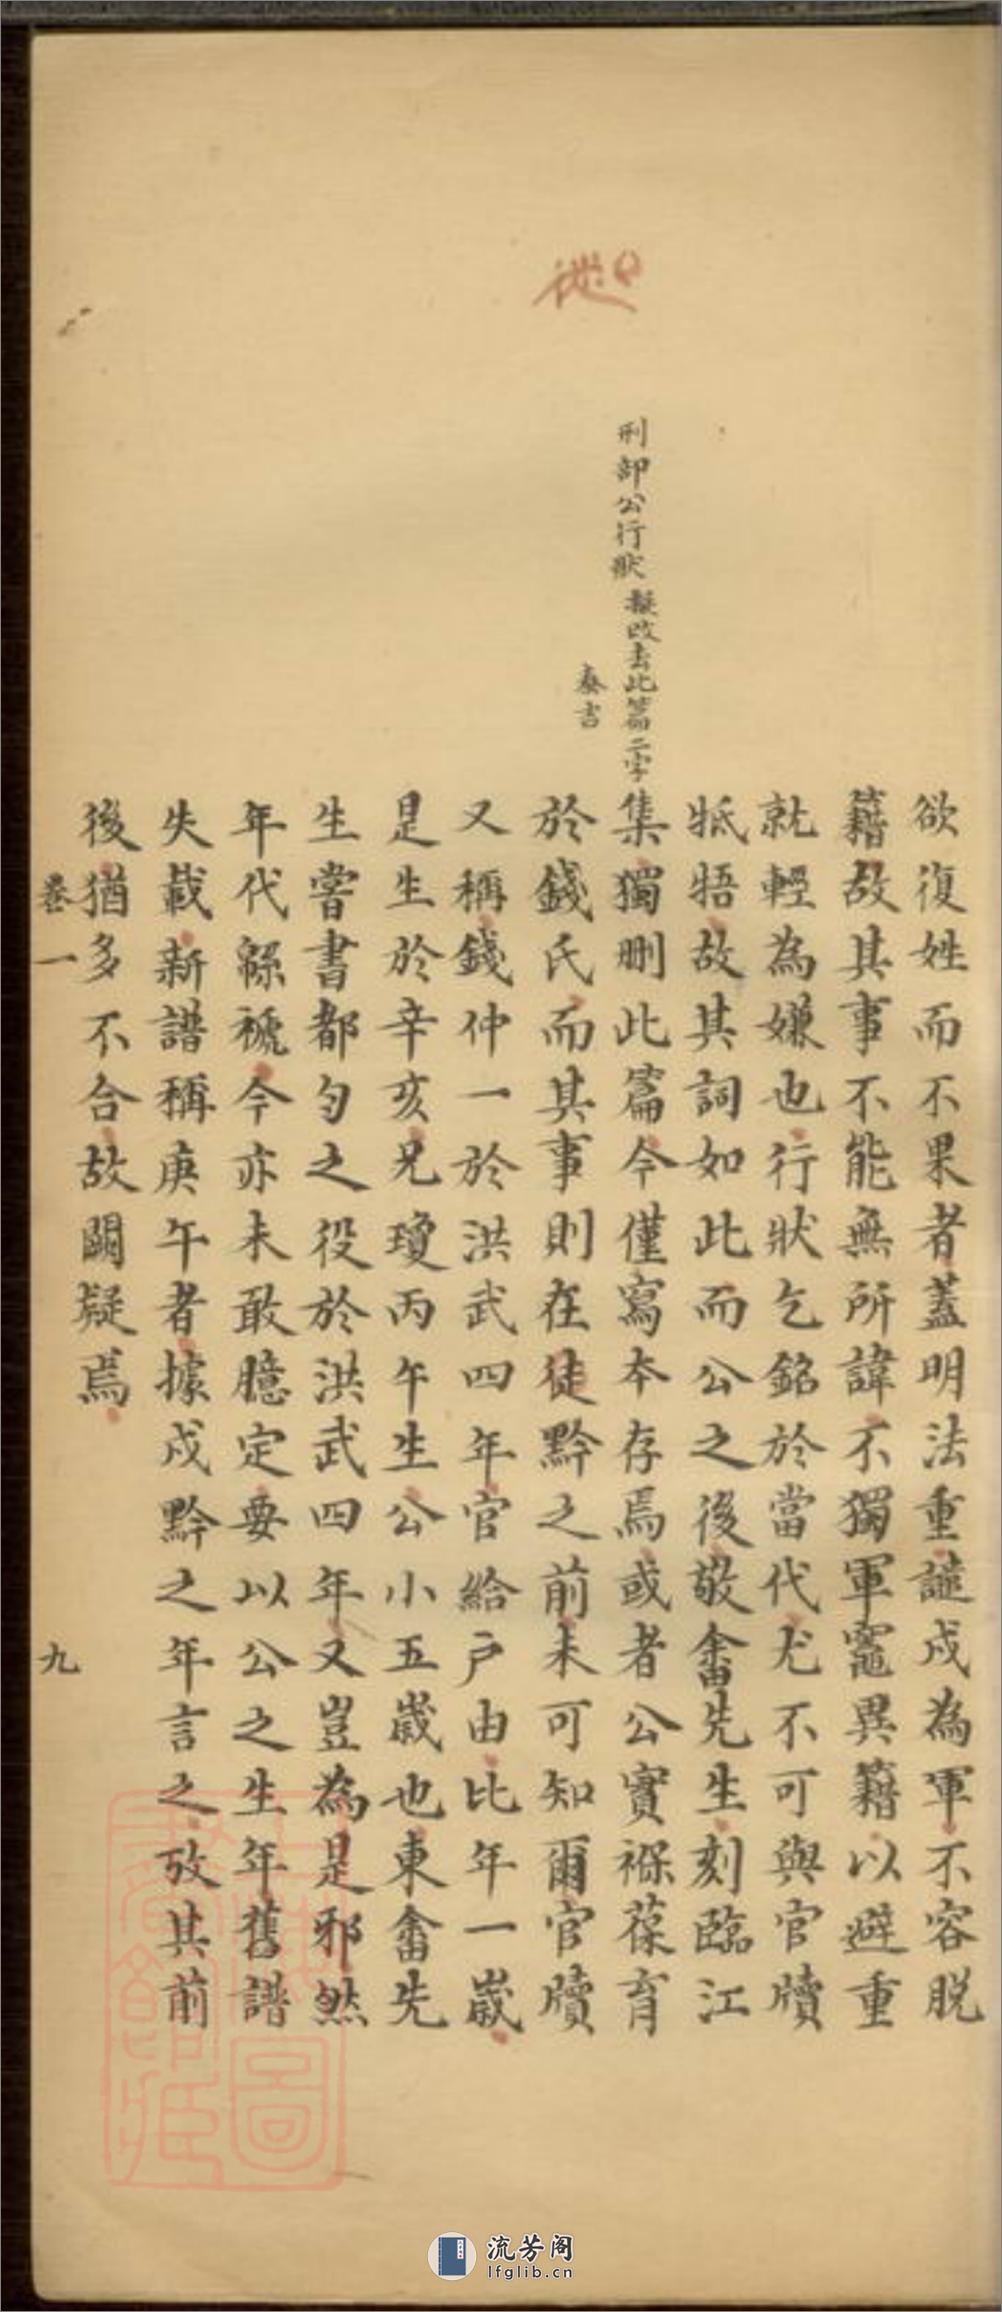 欲復姓而不果者蓋明法重譴戍為軍不容脫
籍故其事不能無所諱不獨軍竈異籍以避重
就輕為嫌也行狀乞銘於當代尤不可與官牘
牴牾故其詞如此而公之後敬畬先生刻臨江
集獨刪此篇今僅寫本存焉或者公實褓葆育
於錢氏而其事則在徒黔之前未可知爾官牘
又稱錢仲一於洪武四年官給户由比年一歲
是生於辛亥兄瓊丙午生公小五歲也東畬先
生嘗書都匀之役於洪武四年又豈為是邪然
年代緜褫今亦未敢臆定要以公之生年舊譜
失載新譜稱庚午者據戍黔之年言之攷其前
後猶多不合故闕疑焉
卷一
九
刑部公行狀
擬改去此篇二字
泰吉
流芳阁
lfglib.cn